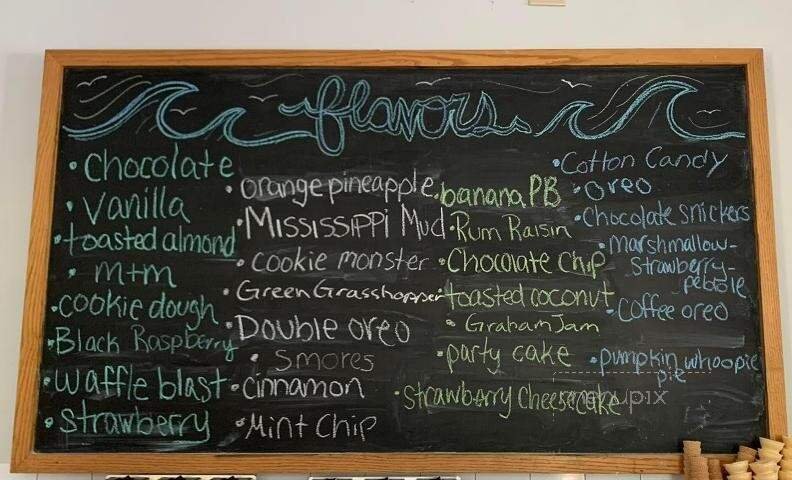 flavors
• Chocolate
• Vanilla
• toasted almond
• m+m
• cookie dough
• Black Raspberry
• waffle blast
• strawberry
• orange pineapple
• Mississippi Mud
• cookie monster
• Green Grasshopper
• Double oreo
• Smores
• cinnamon
• Mint Chip
• banana PB
• Rum Raisin
• Chocolate chip
• toasted coconut
• Graham Jam
• party cake
• Strawberry Cheesecake
• Cotton Candy
• oreo
• Chocolate Snickers
• marshmallow-
strawberry-
pebble
• Coffee oreo
• pumpkin whoopie
pie
menupix